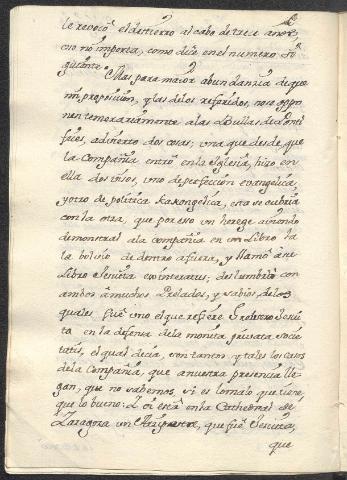 le revocò el destierro al cabo de trece años,
cuio nõ imperta, como dirè en el numero si-
guiente. Mas para maior abundanzia de que
mi proposicion, y las de los referidos, no se oppo-
nen temerariamente a las Bullas de Ponti
fices, advierto dos cosas; una que desde que
la Compañia entrò en la Iglesia, hizo en
ella dos visos, uno de perfeccion evangelica,
y otro de politica Kakongelica, esta se cubria
con la otra, que por eso un herege queriendo
demonstrar a la Compañia en un Libro la
la bolvio de dentro a fuera, y llamò a el
Libro Jesuita exinteratus; deslumbrò con
ambos à muchos Prelados, y sabios, de los
quales. Fuè uno el que refiere Gretsero Jesui
ta en la defensa de la monita privata socie
tatis, el qual decia, son tantos, y tales los casos
de la Compañia, que a nuestra presencia lle
gan, que no sabemos, si es lo malo que tiene,
que lo bueno: Y oi està en la Cathedral de
Zaragoza un que fuè Jesuita,
que